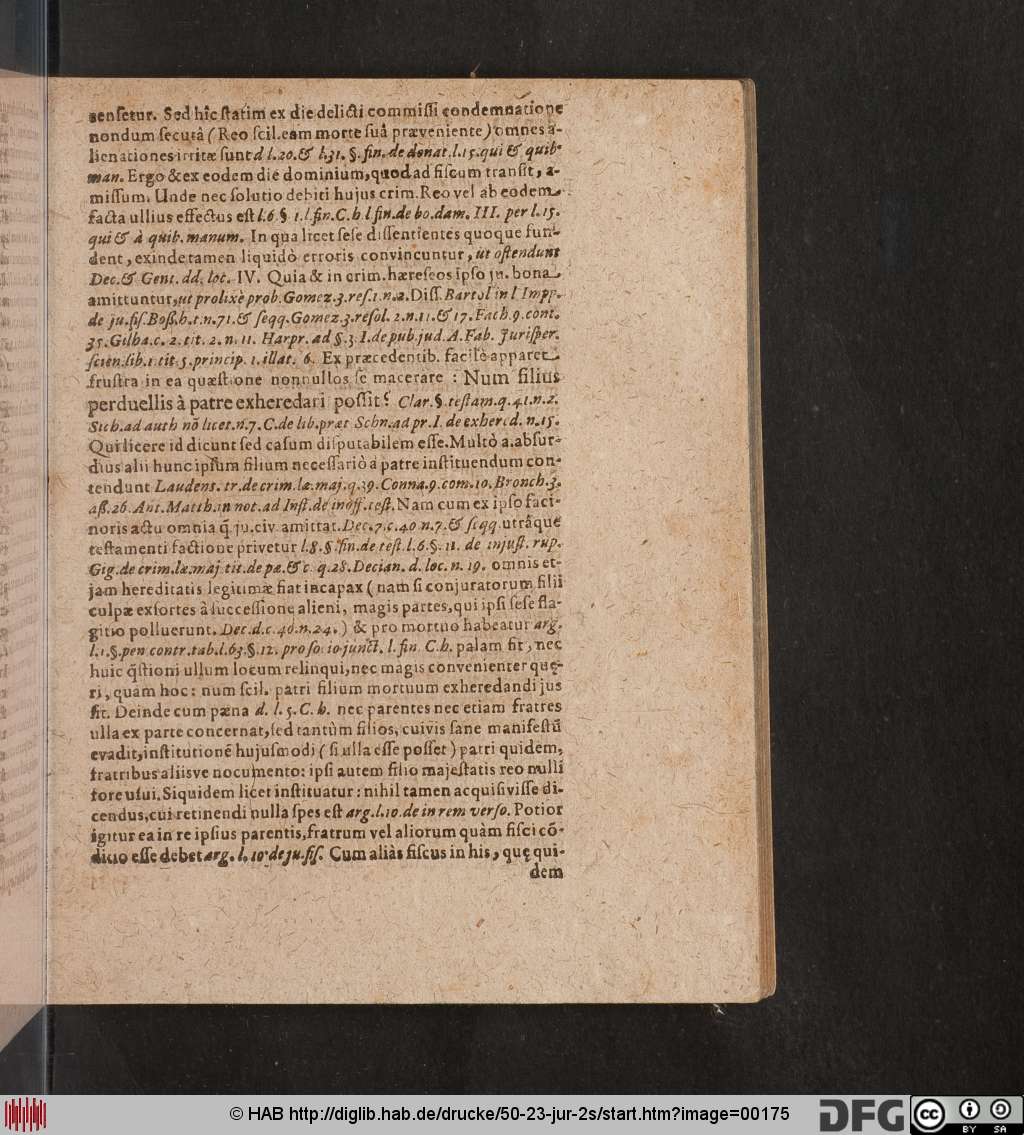 censetur. Sed hîc statim ex die delicti commissi condemnatione
nondum secutâ (Reo scil. eam morte suâ præveniente) omnes a-
lienationes irritæ sunt d l.20. & l.31. §. fin. de donat. l.15. qui & quib.
man. Ergo & ex eodem die dominium, quod ad fiscum transit, a-
missum. Unde nec solutio debiti hujus crim. Reo vel ab eodem
facta ullius effectus est l.6.§ 1. l. fin. C. h l fin. de bo. dam. III. per l.15.
qui & à quib. manum. In qua licet sese dissentientes quoque fun-
dent, exinde tamen liquidò erroris convincuntur, ut ostendunt
Dec. & Gent. dd. loc. IV. Quia & in crim. hæreseos ipso ju. bona
amittuntur, ut prolixè prob. Gomez. 3. res. 1. n. 2. Diss. Bartol in l Impp.
de ju. fis. Boß. h. t. n. 71. & seqq. Gomez. 3. resol. 2. n. 11. & 17. Fach. 9. cont.
35. Gilha. c. 2. tit. 2. n. 11. Harpr. ad §. 3 I. de pub. jud. A. Fab. Jurisper.
scien. lib. 1. tit. 5. princip. 1. illat. 6. Ex præcedentib. facilè apparet
frustra in ea quæstione nonnullos se macerare : Num filius
perduellis à patre exheredari possit? Clar. §. testam. q. 41. n. 2.
Sich. ad auth nõ licet. n. 7. C. de lib. præt Schn. ad pr. I. de exhered. n. 15.
Qui licere id dicunt sed casum disputabilem esse. Multò a. absur-
dius alii hunc ipsum filium necessariò à patre instituendum con-
tendunt Laudens. tr. de crim. læ. maj. q. 39. Conna. 9. com. 10. Bronch. 3.
aß. 26. Ant. Matth. in not. ad Inst. de inoff. test. Nam cum ex ipso faci-
noris actu omnia q̃ ju. civ. amittat. Dec. 7. c. 40 n. 7. & seqq. utrâque
testamenti factione privetur l. 8. §. fin. de test. l. 6. §. 11. de injust. rup.
Gig. de crim. læ. maj. tit. de pæ. & c. q. 28. Decian. d. loc. n. 19. omnis et-
jam hereditatis legitimæ fiat incapax (nam si conjuratorum filii
culpæ exsortes à successione alieni, magis partes, qui ipsi sese fla-
gitio polluerunt. Dec. d. c. 40. n. 24.) & pro mortuo habeatur arg.
l. 1. §. pen contr. tab. l. 63. §. 12. pro so. 10 junct. l. fin. C. h. palam fit, nec
huic q̃stioni ullum locum relinqui, nec magis convenienter quę-
ri, quàm hoc : num scil. patri filium mortuum exheredandi jus
sit. Deinde cum pæna d. l. 5. C. h. nec parentes nec etiam fratres
ulla ex parte concernat, sed tantùm filios, cuivis sane manifestũ
evadit, institutionẽ hujusmodi (si ulla esse posset) patri quidem,
fratribus aliisve nocumento : ipsi autem filio majestatis reo nulli
fore usui. Siquidem licet instituatur : nihil tamen acquisivisse di-
cendus, cui retinendi nulla spes est arg. l. 10. de in rem verso. Potior
igitur ea in re ipsius parentis, fratrum vel aliorum quàm fisci cõ-
ditio esse debet arg. l. 10 de ju. fis. Cum aliàs fiscus in his, quę qui-
dem
© HAB http://diglib.hab.de/drucke/50-23-jur-2s/start.htm?image=00175
DFG
cc BY SA